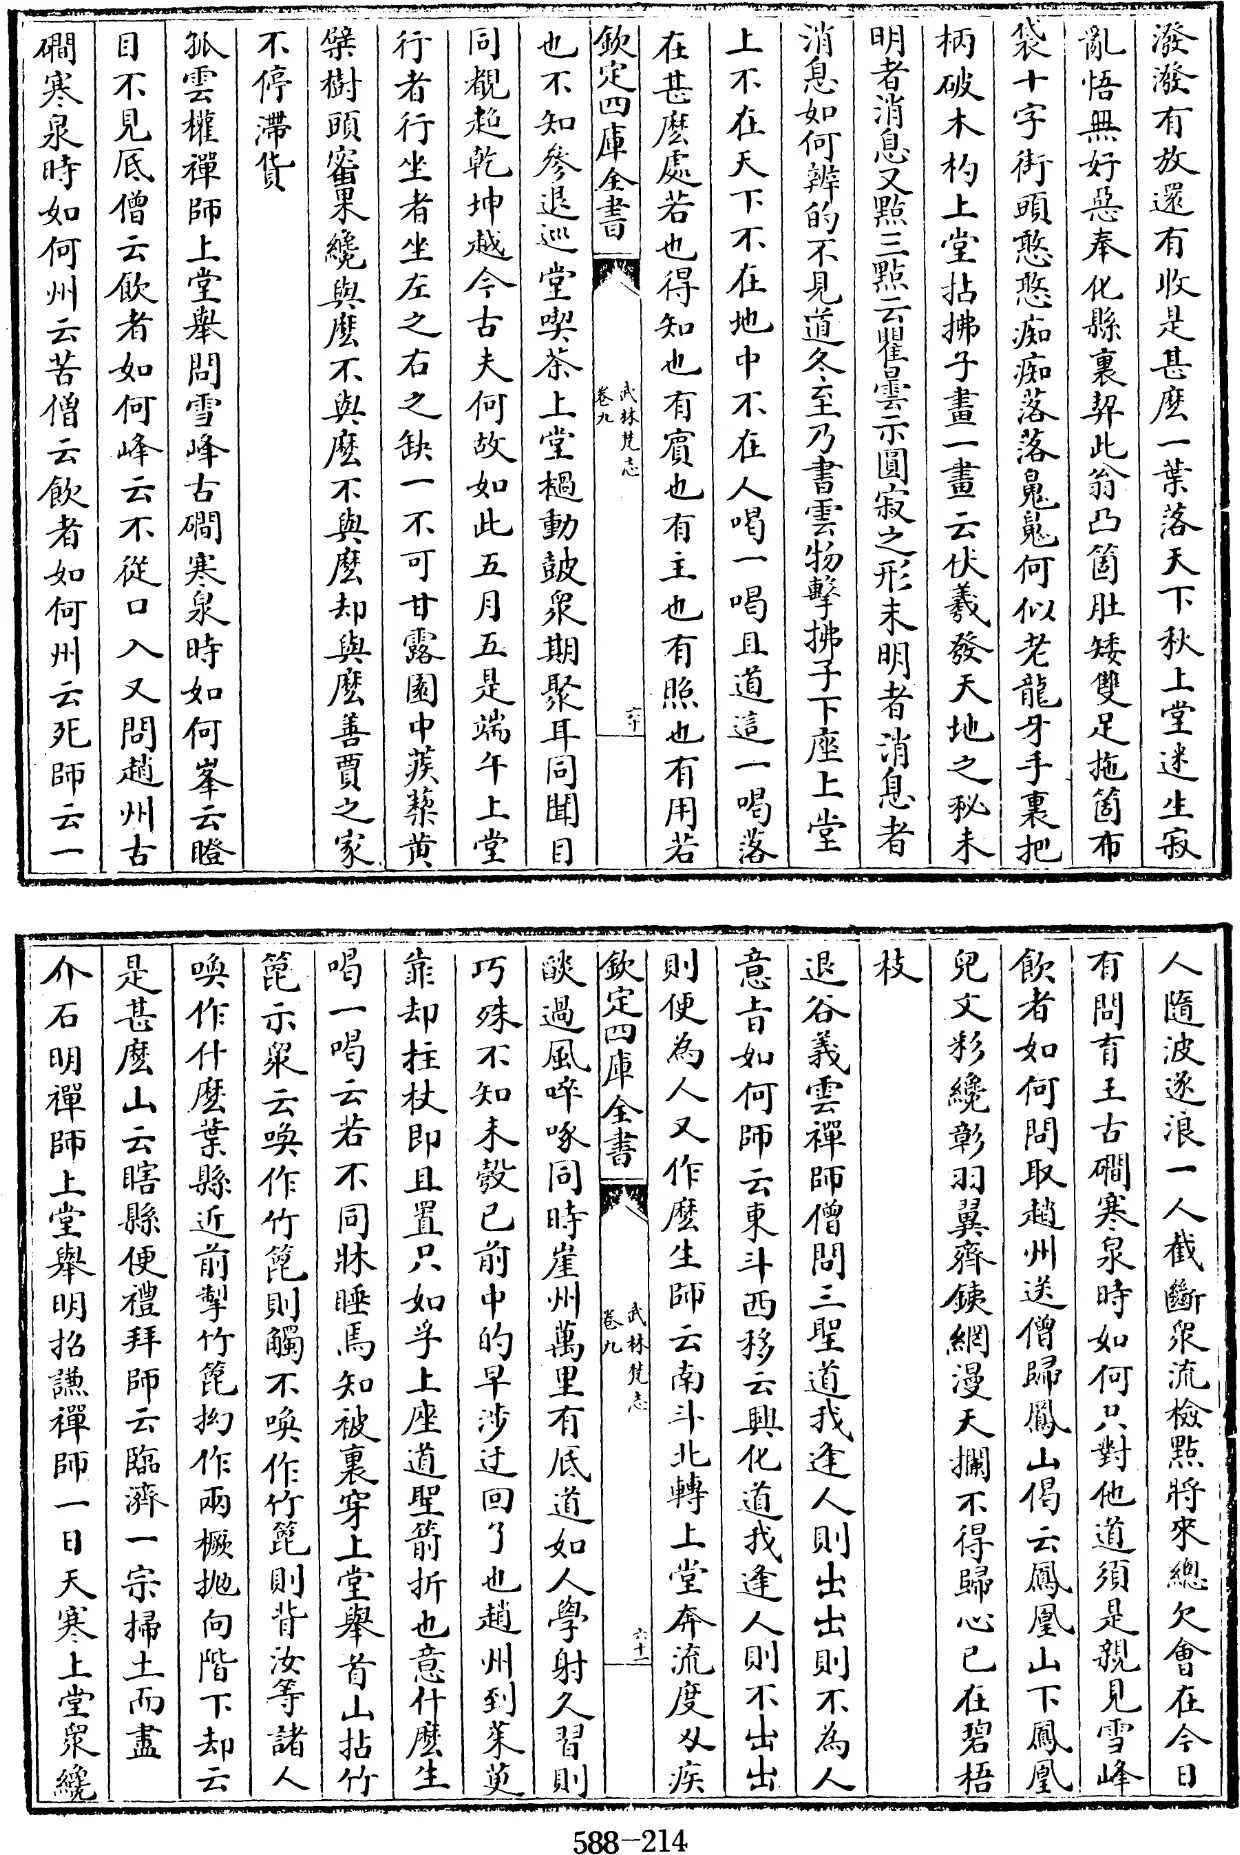 潑潑有放還有收是甚麽一葉落天下秋上堂迷生寂
亂悟無好惡奉化縣裏契此翁凸箇肚矮雙足拖箇布
袋十字街頭憨憨痴痴落落魄魄何似老龍牙手裏把
柄破木杓上堂拈拂子畫一畫云伏羲發天地之秘未
明者消息又點三點云瞿曇示圓寂之形未明者消息者
消息如何辨的不見道冬至乃書雲物擊拂子下座上堂
上不在天下不在地中不在人喝一喝且道這一喝落
在甚麽處若也得知也有賓也有主也有照也有用若
欽定四庫全書
武林梵志
卷九
六十
也不知參退巡堂喫茶上堂檛動鼓衆期聚耳同聞目
同覩超乾坤越今古夫何故如此五月五是端午上堂
行者行坐者坐左之右之缺一不可甘露園中蒺藜黄
檗樹頭蜜果纔與麽不與麽不與麽却與麽善賈之家
不停滯貨
孤雲權禪師上堂舉問雪峰古磵寒泉時如何峯云瞪
目不見底僧云飲者如何峰云不從口入又問趙州古
磵寒泉時如何州云苦僧云飲者如何州云死師云一
人隨波逐浪一人截斷衆流檢點將來總欠會在今日
有問育王古磵寒泉時如何只對他道須是親見雪峰
飲者如何問取趙州送僧歸鳳山偈云鳳凰山下鳳凰
兒文彩纔彰羽翼齊鐵網漫天攔不得歸心已在碧梧
枝
退谷義雲禪師僧問三聖道我逢人則出出則不為人
意旨如何師云東斗西移云興化道我逢人則不出出
則便為人又作麽生師云南斗北轉上堂奔流度刄疾
欽定四庫全書
武林梵志
卷九
六十一
燄過風啐啄同時崖州萬里有底道如人學射久習則
巧殊不知未彀已前中的早涉迂回了也趙州到茱萸
靠却拄杖即且置只如孚上座道聖箭折也意什麽生
喝一喝云若不同牀睡焉知被裏穿上堂舉首山拈竹
箆示衆云喚作竹箆則觸不喚作竹箆則背汝等諸人
喚作什麽葉縣近前掣竹箆拗作兩橛抛向階下却云
是甚麽山云瞎縣便禮拜師云臨濟一宗掃土而盡
介石明禪師上堂舉明招謙禪師一日天寒上堂衆纔
588-214